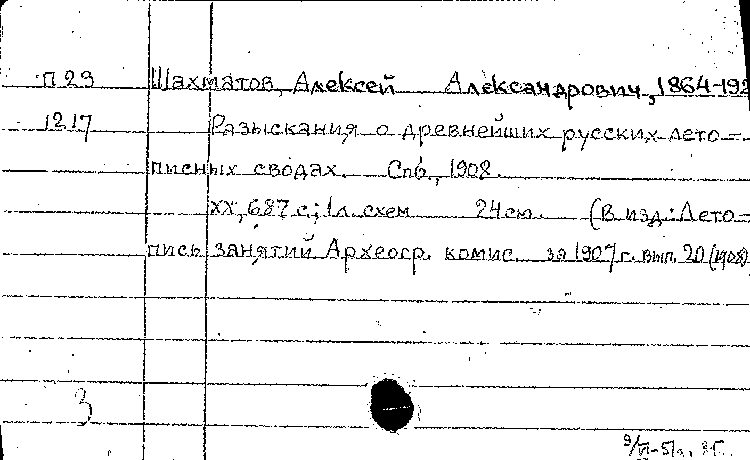 П 23 Шахматов, Алексей Александрович, 1864-192
1217 Разыскания о древнейших русских лето=
писных сводах. Спб., 1908.
XX, 687 с.; 1 л. схем 24 см. (В изд.: Лето=
пись занятий Археогр. комис. за 1907 г. вып. 20 (1908)
3